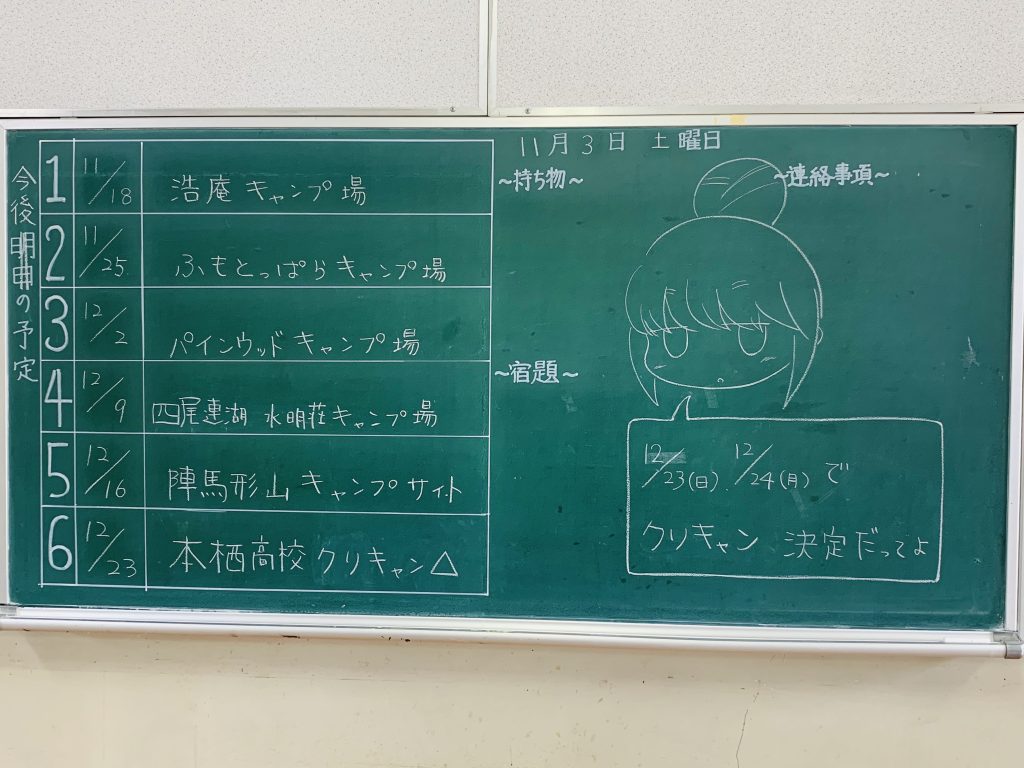 今後の予定
1 11/18 浩庵キャンプ場
2 11/25 ふもとっぱらキャンプ場
3 12/2 パインウッドキャンプ場
4 12/9 四尾連湖 水明荘キャンプ場
5 12/16 陣馬形山キャンプサイト
6 12/23 本栖高校クリキャン△
11月3日 土曜日
~持ち物~
~連絡事項~
~宿題~
12/23(日).12/24(月)で
クリキャン 決定だってよ